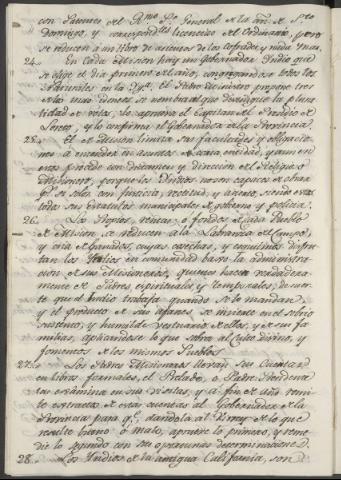 con Patentes del Rmo. Pe. General de la orn. de Sto.
Domingo, y correspondtes. licencias del Ordinario, pero
se reducen á un libro de asientos de los Cofrades y nada mas.
24. En cada Mision hay un Governador Indio que
se elige el dia primero del año, congregandose todos los
Naturales en la Yga. El Padre Ministro propone tres
de los mas idoneos, se nombra al que tubiere la plura
lidad de votos, lo aprueva el Capitan del Presidio de
Loreto, y lo confirma el Governador de la Provincia.
25. El de Mision limita sus facultades y obligacio
nes á entender en asuntos de corta entidad, y aun en
estos procede con dictamen y direccion del Religioso
Misionero, porque los Indios no son capaces de obrar
por si solos con juicio, rectitud, y
todos sus Estatutos municipales de govierno y policia.
26. Los Propios, rentas, o fondos de cada Pueblo
de Mision se reducen á la Labranza del Campo,
y cria de Ganados, cuyas cosechas, y esquilmos disfru
tan los Indios en comunidad baxo la administra
cion de sus Misioneros, quienes hacen verdadera
mente de Padres, espirituales, y temporales, de suer
te que el Indio trabaja quando se lo mandan,
y el producto de sus afanes se invierte en el sobrio
sustento, y humilde vestuario de ellos, y de sus fa
milias, aplicandose lo que sobra al Culto divino, y
fomentos de los mismos Pueblos.
27. Los Padres Misioneros llevan sus Cuentas
en libros formales, el Prelado, o Padre Presidente
las examina en sus visitas, y á fin de año remi
te extracto de estas cuentas al Governador de la
Provincia para qe. dandola al Virrey de lo que
resulte bueno o malo, apruebe lo primero, y reme
die lo segundo con sus oportunas determinaciones.
28. Los Indios de la antigua California, son